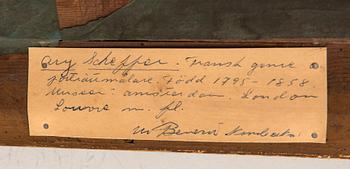 Ary Scheffer. Fransk genre
porträttmålare. Född 1795-1858.
Museer: Amsterdam. London
Louvre m. fl.